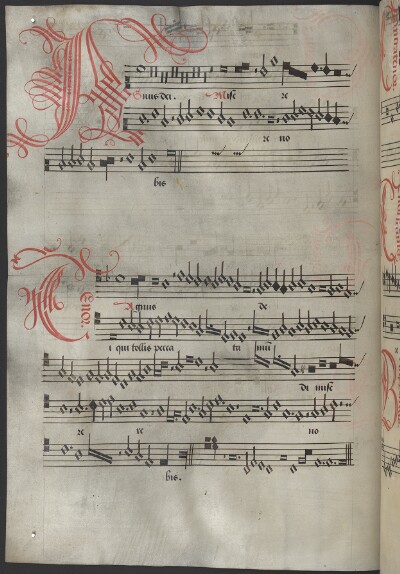 Agnus dei. Mise re
re no
bis
Tenor. Agnus de
i qui tollis pecca ta mu
di mise
re re no
bis.